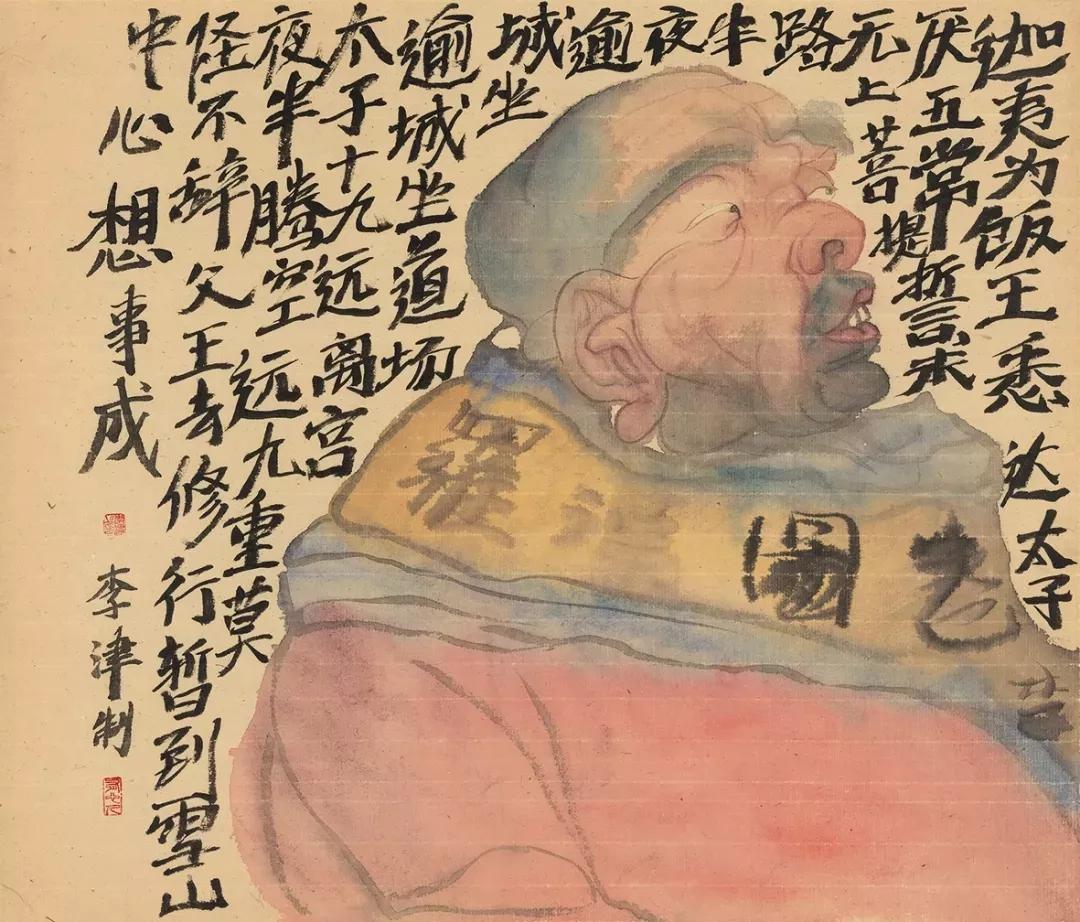 迦夷为饭王悉达太子
厌五常誓求
无上菩提
路
半
夜
逾
城坐
逾城坐道场
太子十九远离宫
夜半腾空远九重莫
怪不辞父王去修行暂到雪山
中心想事成
李津制